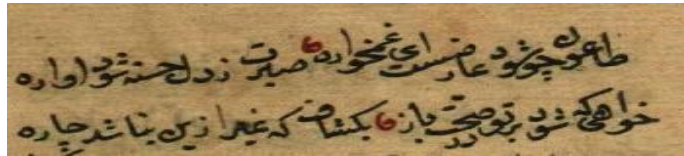 طاعون چو شود عارضت ای غمخواره صبرت ز دل خسته شود اواره
خواهی که شود بر تو در صحت باز بکشا که غیر ازین نباشد چاره